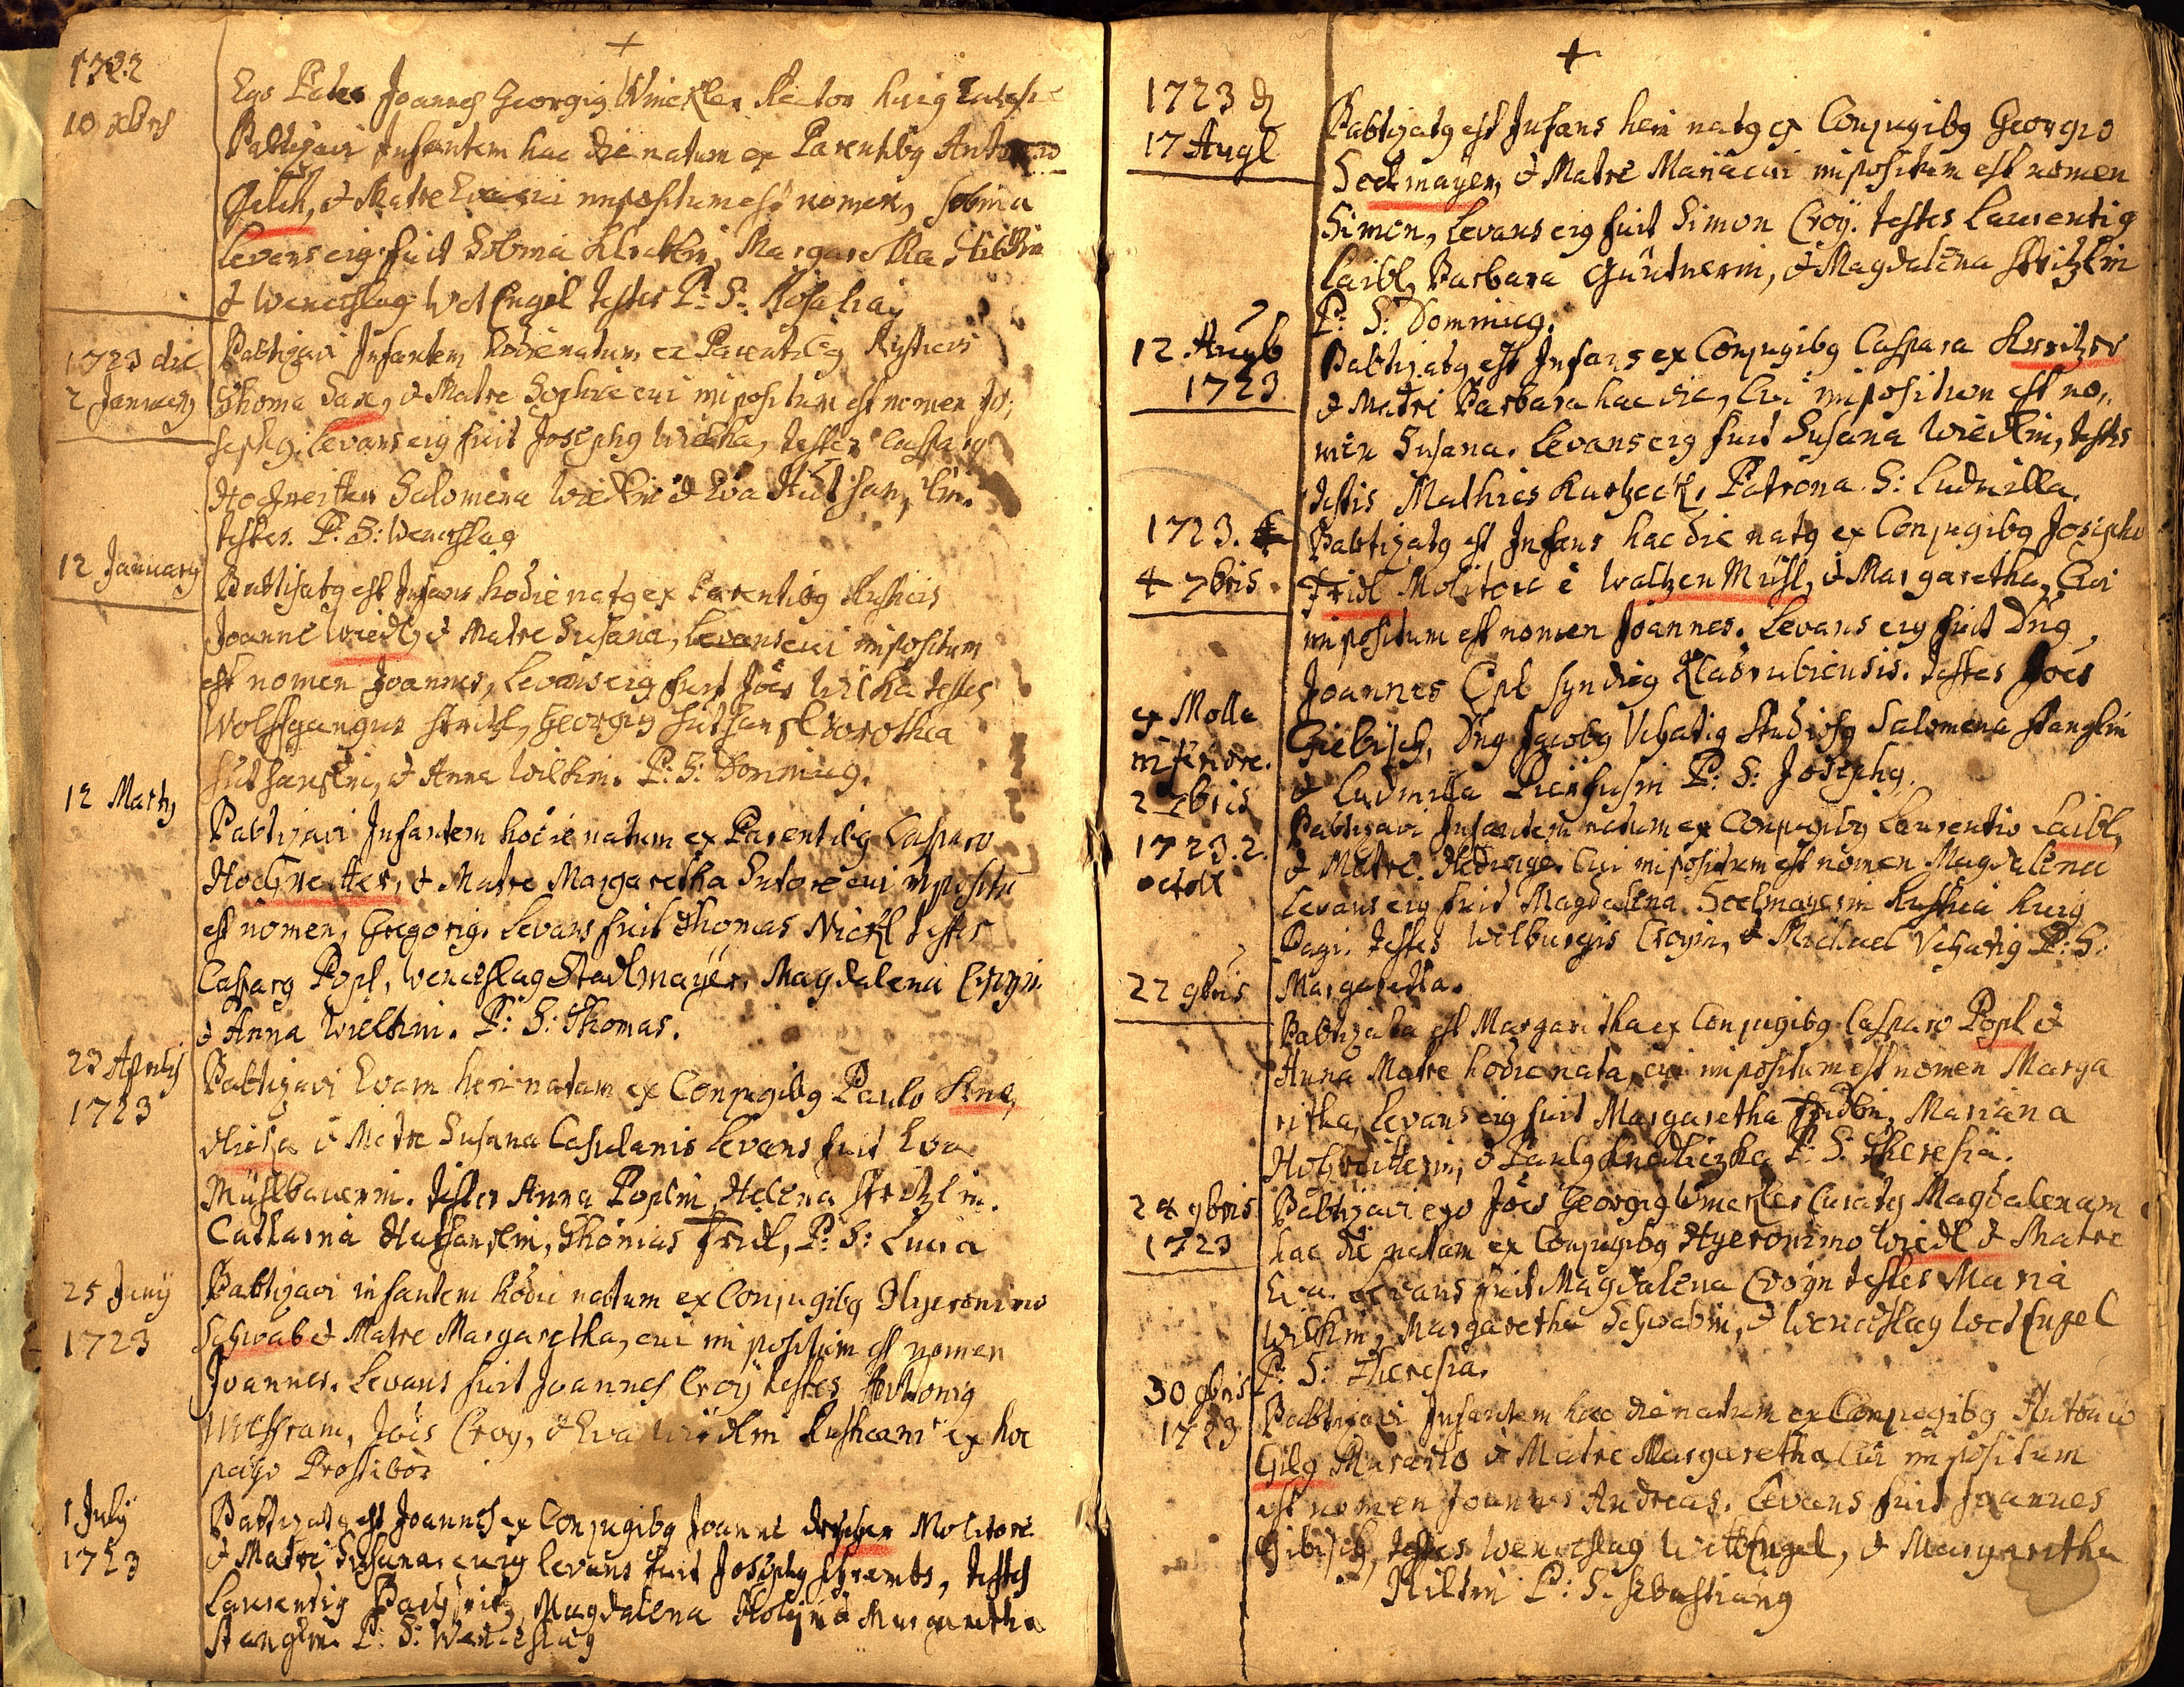 1722
10 Xbris
Ego Pater Joannes Georgig Winckler Rector huig
Babtizavi Infantem hac die natum ex Parentibg Antonio
Gilch, & Matre Eva cui impositum est nomen, Sobina
Levans eig fuit Sobina Margaretha
& Wenceslag Wetengel testes P: S: Rosalia
1723 die
2 January
Babtizavi Infantem hodie natum ex Parentibg Rusticis
Thoma Sax, & Matre Sophia cui impositum est nomen Jo:
sephg. Levans eig fuit Josephg Testes Casparg
Hochreitter Salomena Wiedlin & Eva
testes. P: S: Wenceslag
12 January
Babtisatg est Infans hodie natg ex Parentibg Rusticis
Joanne Wiedl, & Matre Susana, Levans cui impositum
est nomen Joannes, Levans eig fuit Joes Testes
Wolffgangus Georgig Dorothea
& Anna Wilhin. P: S: Dominicg.
12 Marty
Babtizavi Infantem hodie natum ex Parentibg Casparo
Hochreitter, & Matre Margaretha Sutore cui impositu
est nomen, Gregorig. Levans fuit Thomas Nickl Testes
Casparg Popl, Wenceslag Stadlmayer, Magdalena Croyin
& Anna Wielhin. P: S: Thomas.
23 Aprilis
1723
Babtizavi Evam heri natam ex Conjugibg Paulo Kne,
dlicza & Matre Susana Casulanis Levans fuit Eva
Mühlbauerin. Testes Anna Poplin, Helena Stritzlin.
Catharina Huthanslin, Thomas Fridl, P: S: Lucia
25 Juny
1723
Babtizavi infantem hodie natum ex Conjugibg Hyeronimo
Schwab & Matre Margaretha, cui impositum est nomen
Joannes. Levans fuit Joannes Croy testes Anthonig
Wolffram, Joes Croy, & Eva Wiedlin Rusticani ex hoc
pago Prostibor
1 July
1723
Babtizatg est Joannes ex Conjugibg Joanne Drescher Molitore
& Matre Susana. cuig levans fuit Josephg Schrembs, testes
Laurentig Magdalena & Margaretha
Stanglin P: S: Wenceslag
1723 d
17 Augl
Babtizatg est Infans heri natg ex Conjugibg Georgio
Seelmayer, & Matre Maria cui impositum est nomen
Simon, Levans eig fuit Simon Croy. testes Laurentig
Laibl, Barbara Gürtnerin, & Magdalena Stritzlin
P: S: Dominicg.
12. Augb
1723
Babtizatg est Infans ex Conjugibg Caspara Kreitzer
& Matre Barbara hac die, Cui impositum est no,,
men Susana. Levans eig fuit Susana Wiedlin, testes
testis Mathies Kurtzeck, Patrona S: Ludmilla.
1723.
4 7bris.
Babtizatg est Infans hac die natg ex Conjugibg Josepho
Fridl Molitore è Waltzen Mühl, & Margaretha, Cui
impositum est nomen Joannes. Levans eig fuit Dng
Joannes Syndicg Kladrubiensis. Testes Joes
Giebisch, Dng Jacobg Uchatig Studiosg Salomena Stanglin
& Ludmilla P: S: Josephg.
ex Molla
inferiore.
2 8bris
1723. 2.
octob
Babtizavi Infantem natum ex Conjugibg Laurentio Laibl,
& Matre. Hedwige. Cui impositum est nomen Magdalena
Levans eig fuit Magdalena Seelmayerin Rustica huig
Pagi. testes Wilburgis Croyin, & Michael Uchatig P: S:
Margaretha.
22 9bris
Babtizata est Margaritha ex Conjugibg Casparo Popl &
Anna Matre hodie nata, cui impositum est nomen Marga
ritha, Levans eig fuit Margaretha Mariana
Hochreitterin, & Paulg Knedliczka P: S: Theresia.
24 9bris
1723
Babtizavi ego Joes Georgig Winckler Curatg Magdalenam
hac die natam ex Conjugibg Hyeronimo Wiedl & Matre
Eva. Levans fuit Magdalena Croyin testes Maria
Wilhin, Margaretha Schwabin, & Wenceslag Wetengel
P: S: Theresia.
30 9bris
1723
Babtizavi Infantem hac die natum ex Conjugibg Antonio
Gilg Murario & Matre Margaretha Cui impositum
est nomen Joannes Andreas. Levans fuit Joannes
Gibisch, testes Wenceslag Wittengel, & Margaretha
P: S. Sebastiang